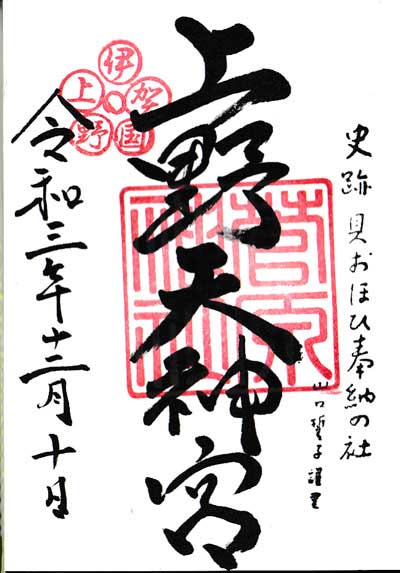 史跡 貝おほひ奉納の社
山口誓子謹書
上野天神宮
菅原神社
伊賀国上野
令和三年十二月十日